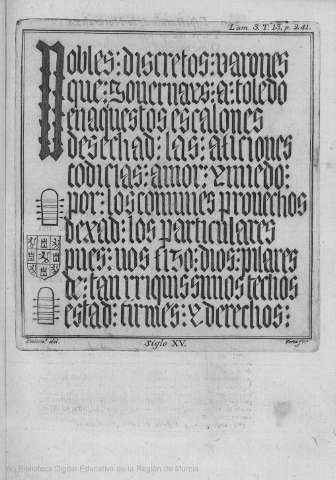 Lam. 3. T. 13, p. 241.
Nobles: discretos: varones
que: Governays: a: toledo
enaquestos escalones
desechad: las: aficiones
codicias: amor: y miedo:
por: los comunes provechos
dexad: los particulares
pues: vos fizo: dios: pilares
de: tan rriquissimos techos
estad: firmes: y derechos:
Siglo XV.
Biblioteca Digital Educativa de la Región de Murcia